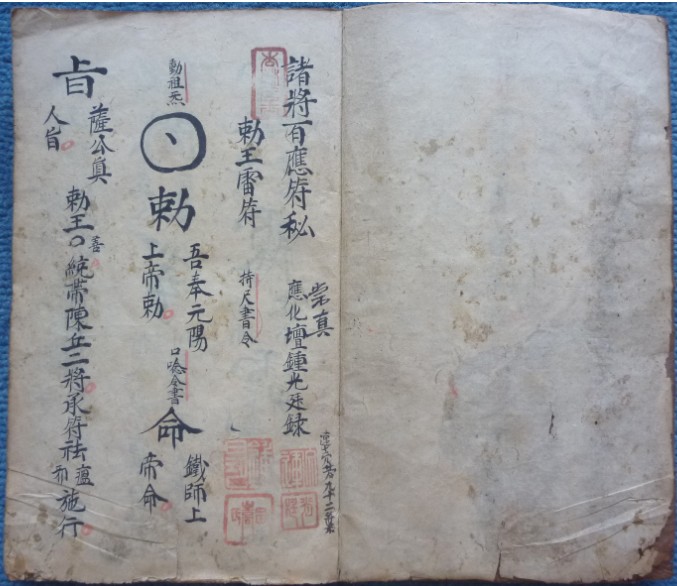 諸將百應符秘
崇真
應化壇鍾光廷録
勅王雷符
持尺書令
勅祖炁
勅
吾奉元陽
上帝勅
口唸仝書
命
鐵師上
帝命
旨
薩公真
人旨
勅王善統帶陳丘二將承符祛瘟施行